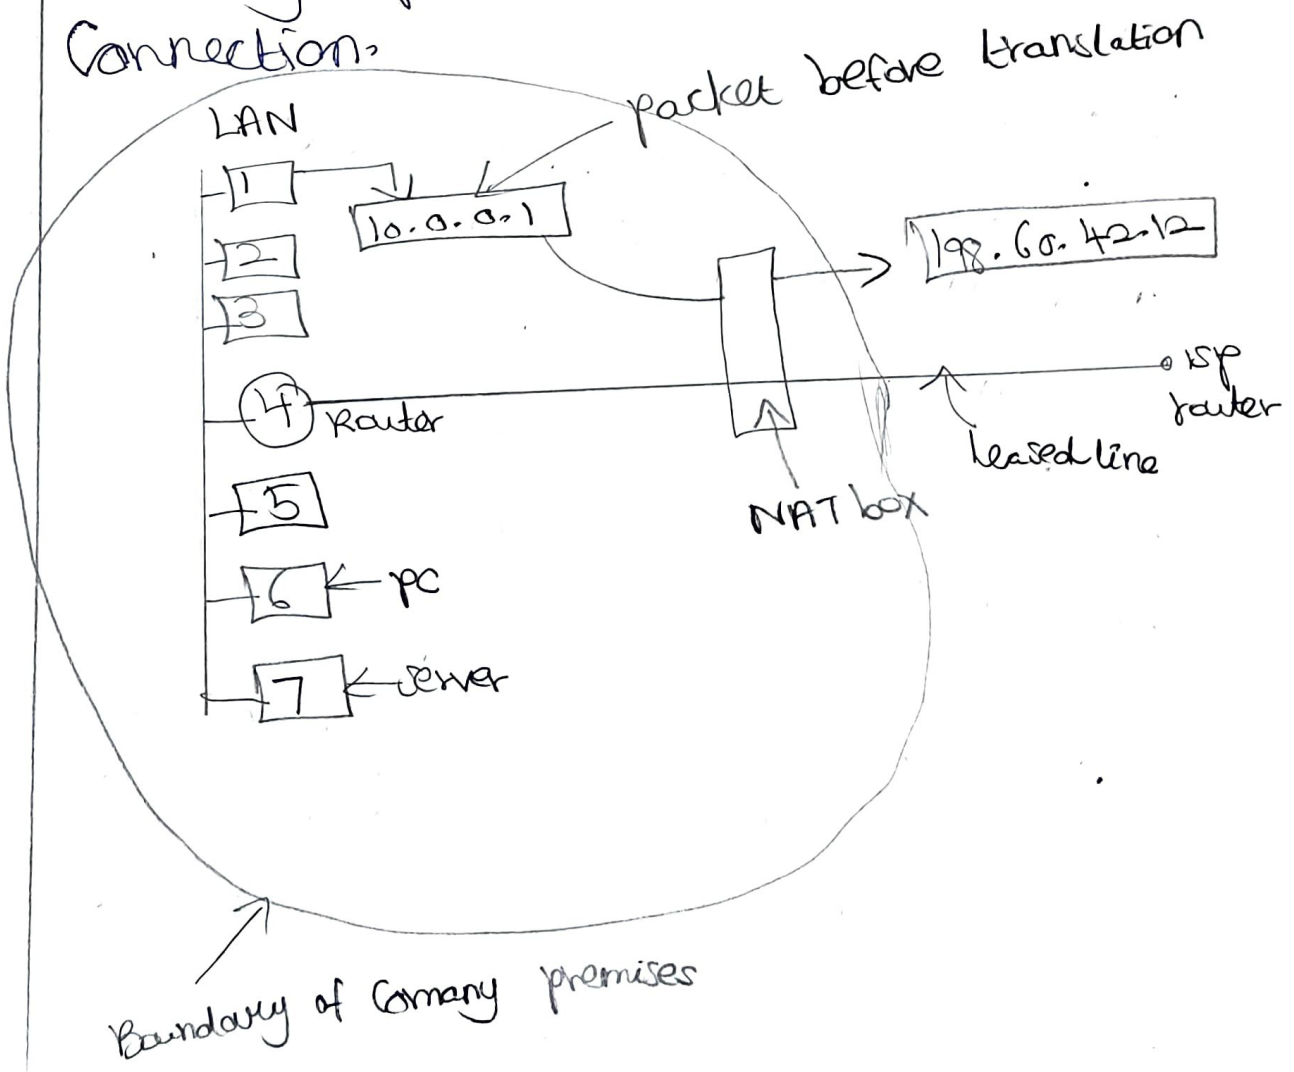 Connection.
packet before translation
LAN
1
10.0.0.1
198.60.42.12
2
3
4
Router
isp
router
leased line
NAT box
5
6
pc
7
server
Boundary of Comany premises